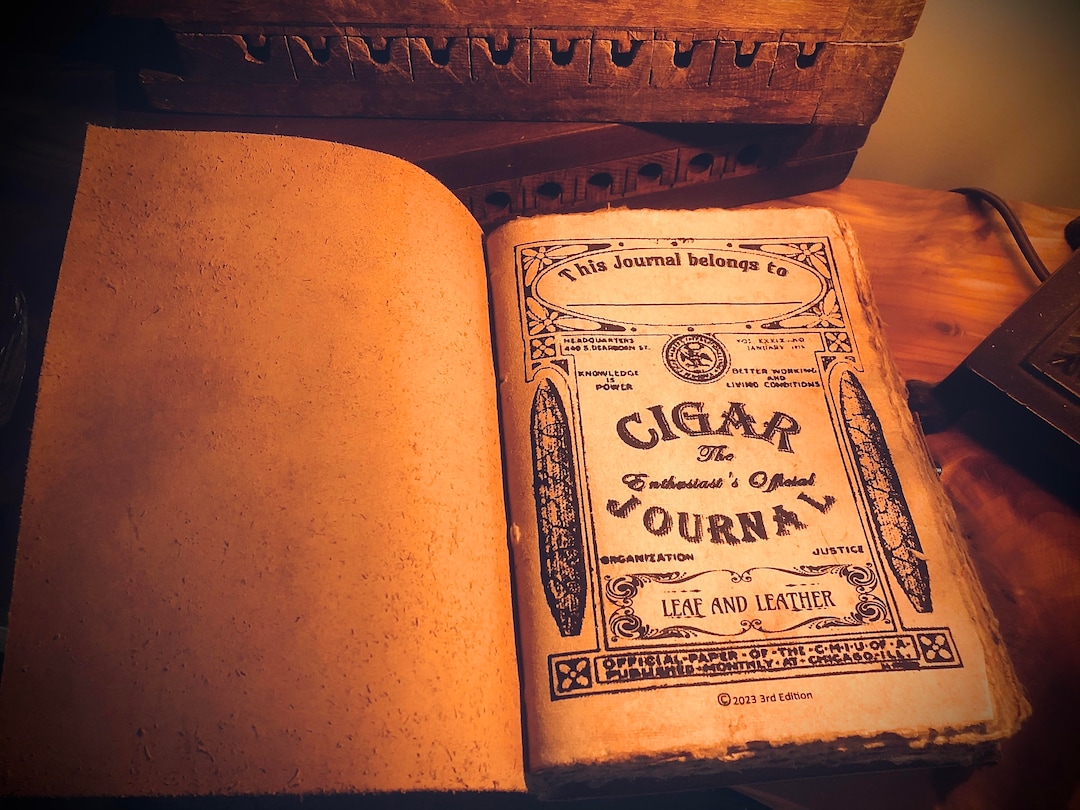 This Journal belongs to
HEADQUARTERS
440 S. DEARBORN ST.
VOL XXXIX
JANUARY
KNOWLEDGE
IS
POWER
BETTER WORKING
AND
LIVING CONDITIONS
CIGAR
The
Enthusiast's Official
JOURNAL
ORGANIZATION
JUSTICE
LEAF AND LEATHER
OFFICIAL·PAPER·OF·THE·C·M·I·U·OF·A·
PUBLISHED·MONTHLY·AT·CHICAGO·ILL·
© 2023 3rd Edition